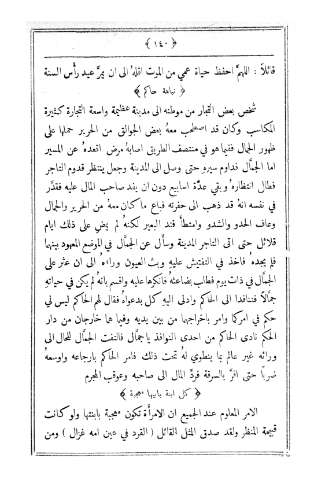 ﴿ ١٤٠ ﴾
قائلاً : اللهمَّ احفظ حياة عمي من الموت اقله الى ان يمرَّ عيد رأس السنة
﴿ نباهة حاكم ﴾
شخص بعض التجار من موطنه الى مدينة عظيمة واسعة التجارة كثيرة
المكاسب وكان قد اصطحب معهُ بعض الجوالق من الحرير حملها على
ظهور الجمال ففيما هو في منتصف الطريق اصابهُ مرض اقعدهُ عن المسير
اما الجمَّال فداوم سيره حتى وصل الى المدينة وجعل ينتظر قدوم التاجر
فطال انتظاره وبقي عدَّة اسابيع دون ان يفد صاحب المال عليه فقدَّر
في نفسه انهُ قد ذهب الى حفرته فباع ما كان معهُ من الحرير والجمال
وعاف الحدو والشدو وامتطا قتد البعير لكنهُ لم يمضِ على ذلك ايام
قلائل حتى اتى التاجر المدينة وسأل عن الجمَّال في الموضع المعهود بينهما
فلم يجده فاخذ في التفتيش عليه وبث العيون وراءهُ الى ان عثر على
الجمَّال في ذات يوم فطالب بضاعته فانكرها عليه واقسم بانهُ لم يكن في حياته
جمَّالاً فتنافدا الى الحاكم وادلى اليه كل بدعواهُ فقال لهم الحاكم ليس لي
حكم في امركما وامر باخراجهما من بين يديه وفيما هما خارجان من دار
الحكم نادى الحاكم من احدى النوافذ يا جمَّال فالتفت الجمَّال للحال الى
ورائه غير عالم بما ينطوي لهُ تحت ذلك. فامر الحاكم بارجاعه واوسعهُ
ضربًا حتى اقرَّ بالسرقة فردَّ المال الى صاحبه وعوقب المجرم
﴿ كل ابنة بابيها معجبة ﴾
الامر المعلوم عند الجميع ان الامرأة تكون معجبة بابنتها ولو كانت
قبيحة المنظر ولقد صدق المثل القائل ( القرد في عين امه غزال ) ومن